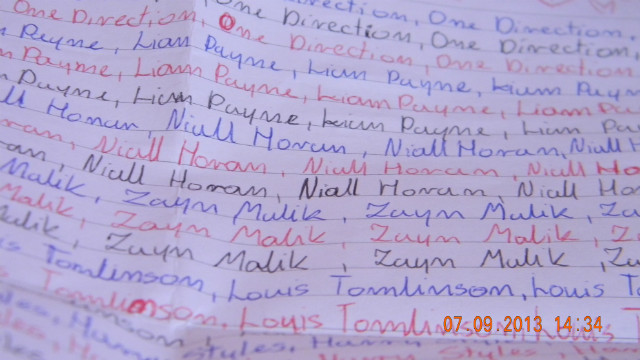 One Direction, One Direction,
One Direction, One Direction, One Direction,
One Direction, One Direction, One Direction
Payne, Liam Payne, Liam Payne, Liam Payn
Payme, Liam Payme, Liam Payme, Liam Pa
Payme, Liam Payne, Liam Payne, Liam Pa
ll Horan, Niall Horan, Niall Horan, Niall H
oran, Niall Horan, Niall Horan, Niall Ho
ran, Niall Horan, Niall Horan, Niall Ho
Malik, Zayn Malik, Zayn Malik, Za
Malik, Zayn Malik, Zayn Malik, Z
Malik, Zayn Malik, Zayn Malik, Za
s Tomlinson, Louis Tomlinson, Louis T
Tomlinson, Louis Tomlinson, Louis T
Tomlinson,
Styles, Harry Styles, Harry
07.09.2013 14:34